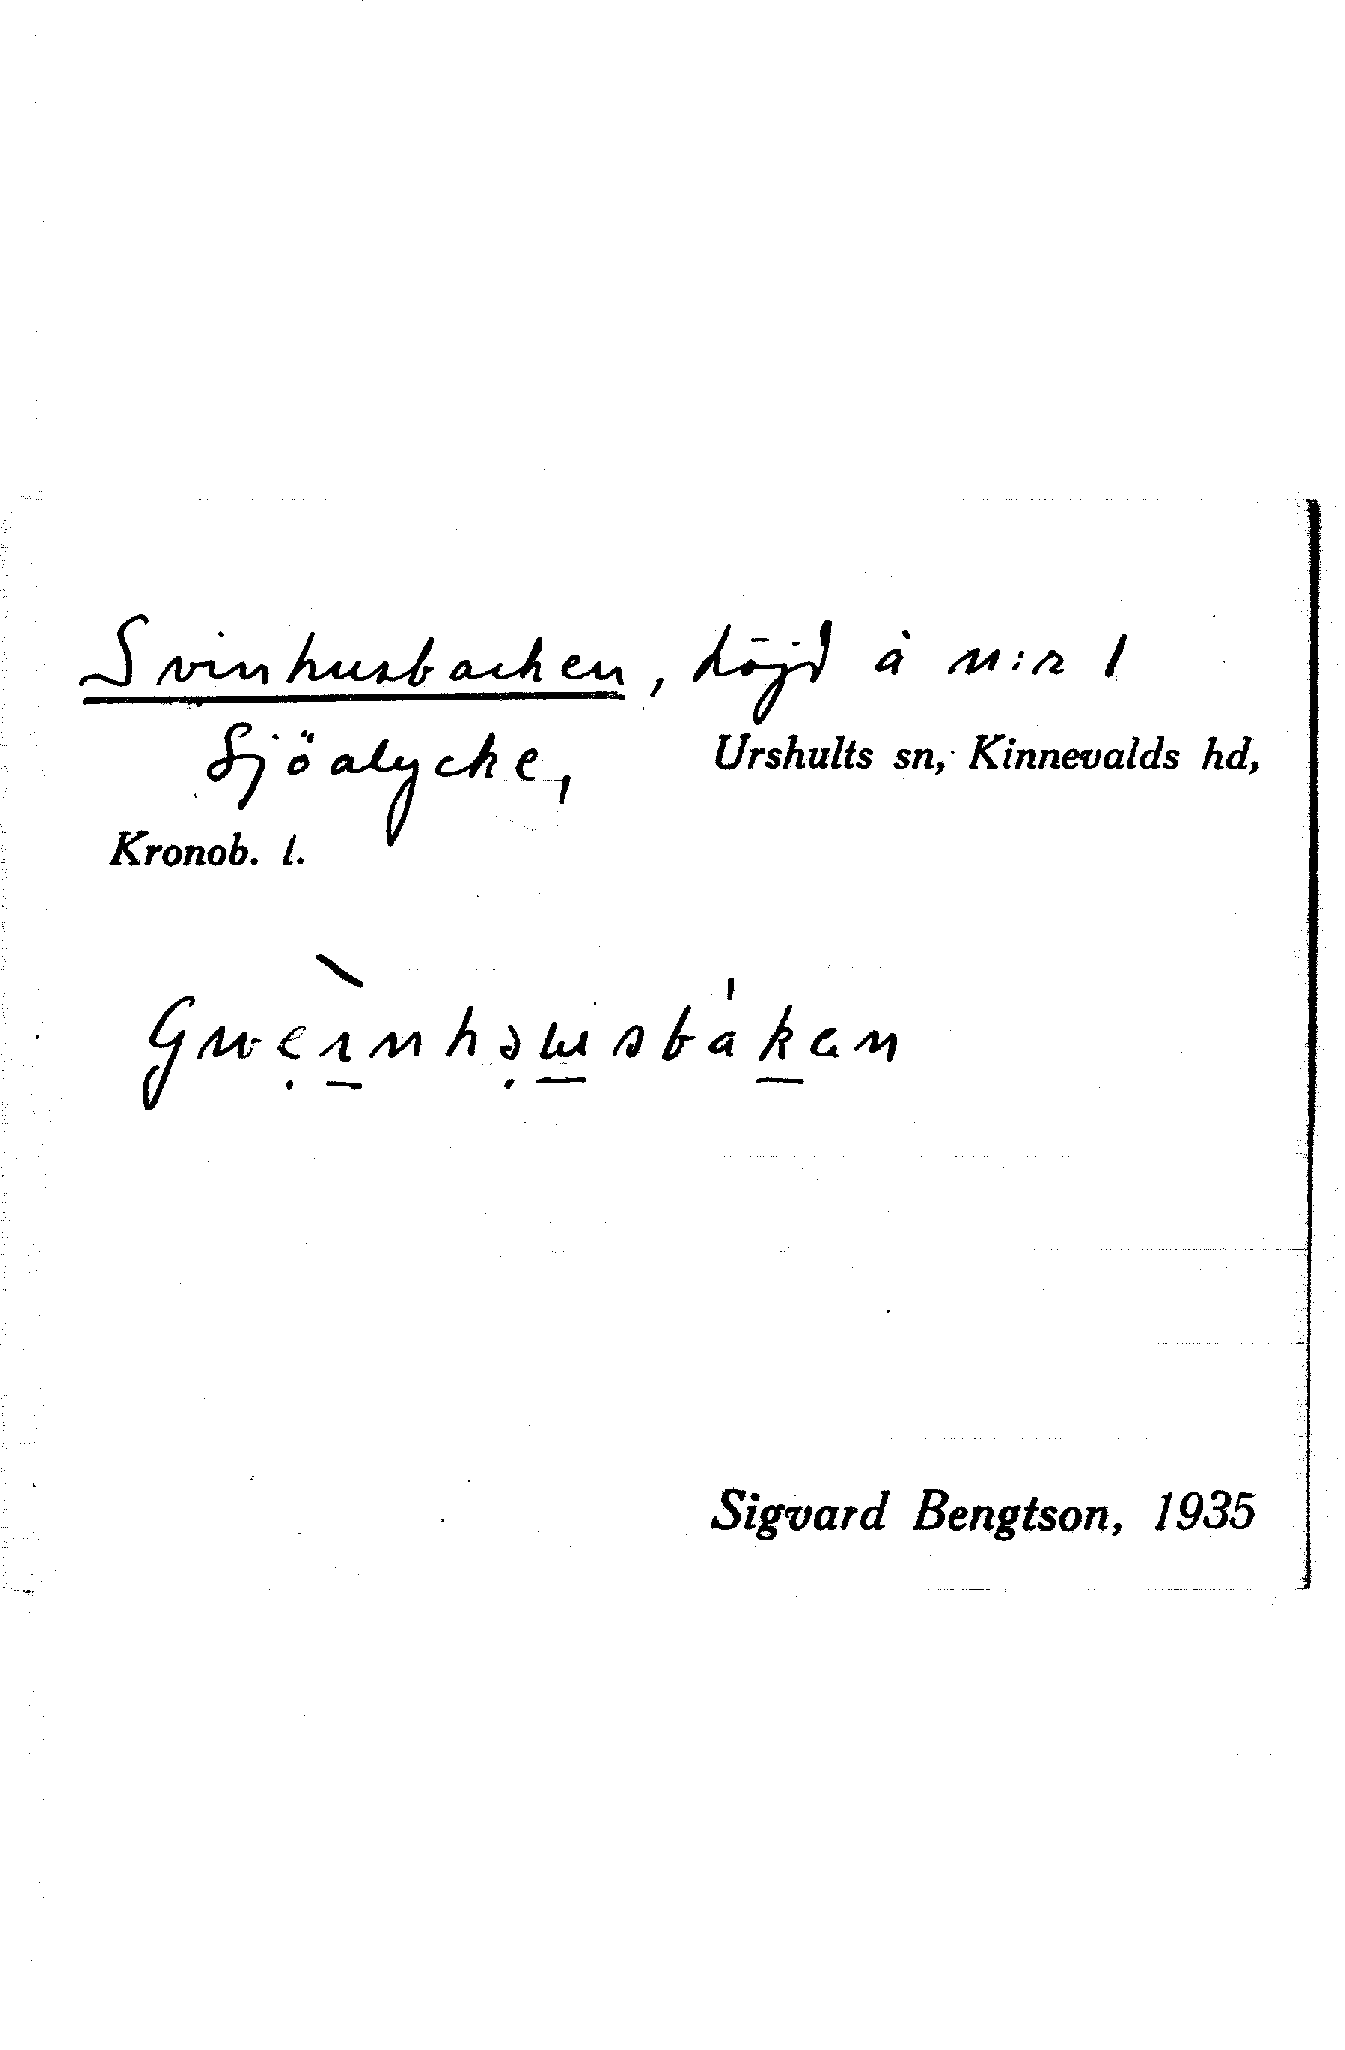 Svinhusbacken, höjd å n:r 1
Sjöalycke, Urshults sn, Kinnevalds hd,
Kronob. l.
Sigvard Bengtson, 1935